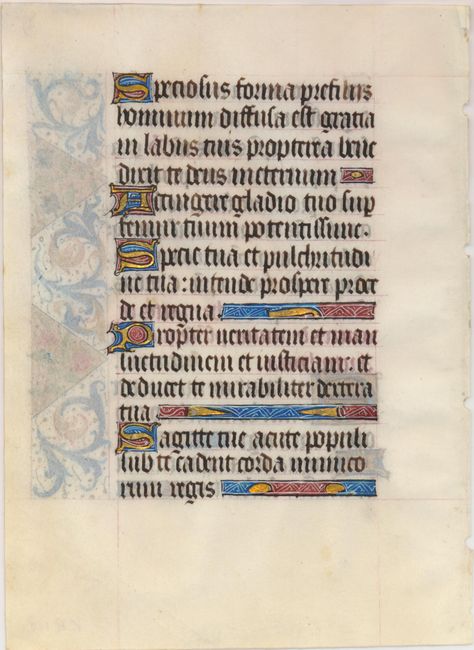 Speciosus forma prefiliis
hominum diffusa est gratia
in labiis tuis propterea bene
dixit te deus ineternum
Accingere gladio tuo sup
femur tuum potentissime.
Specie tua et pulchritudi
ne tua: intende prospere proce
de et regna.
Propter veritatem et man
suetudinem et iusticiam: et
deducet te mirabiliter dextera
tua
Sagitte tue acute populi
sub te cadent corda inimico
rum regis